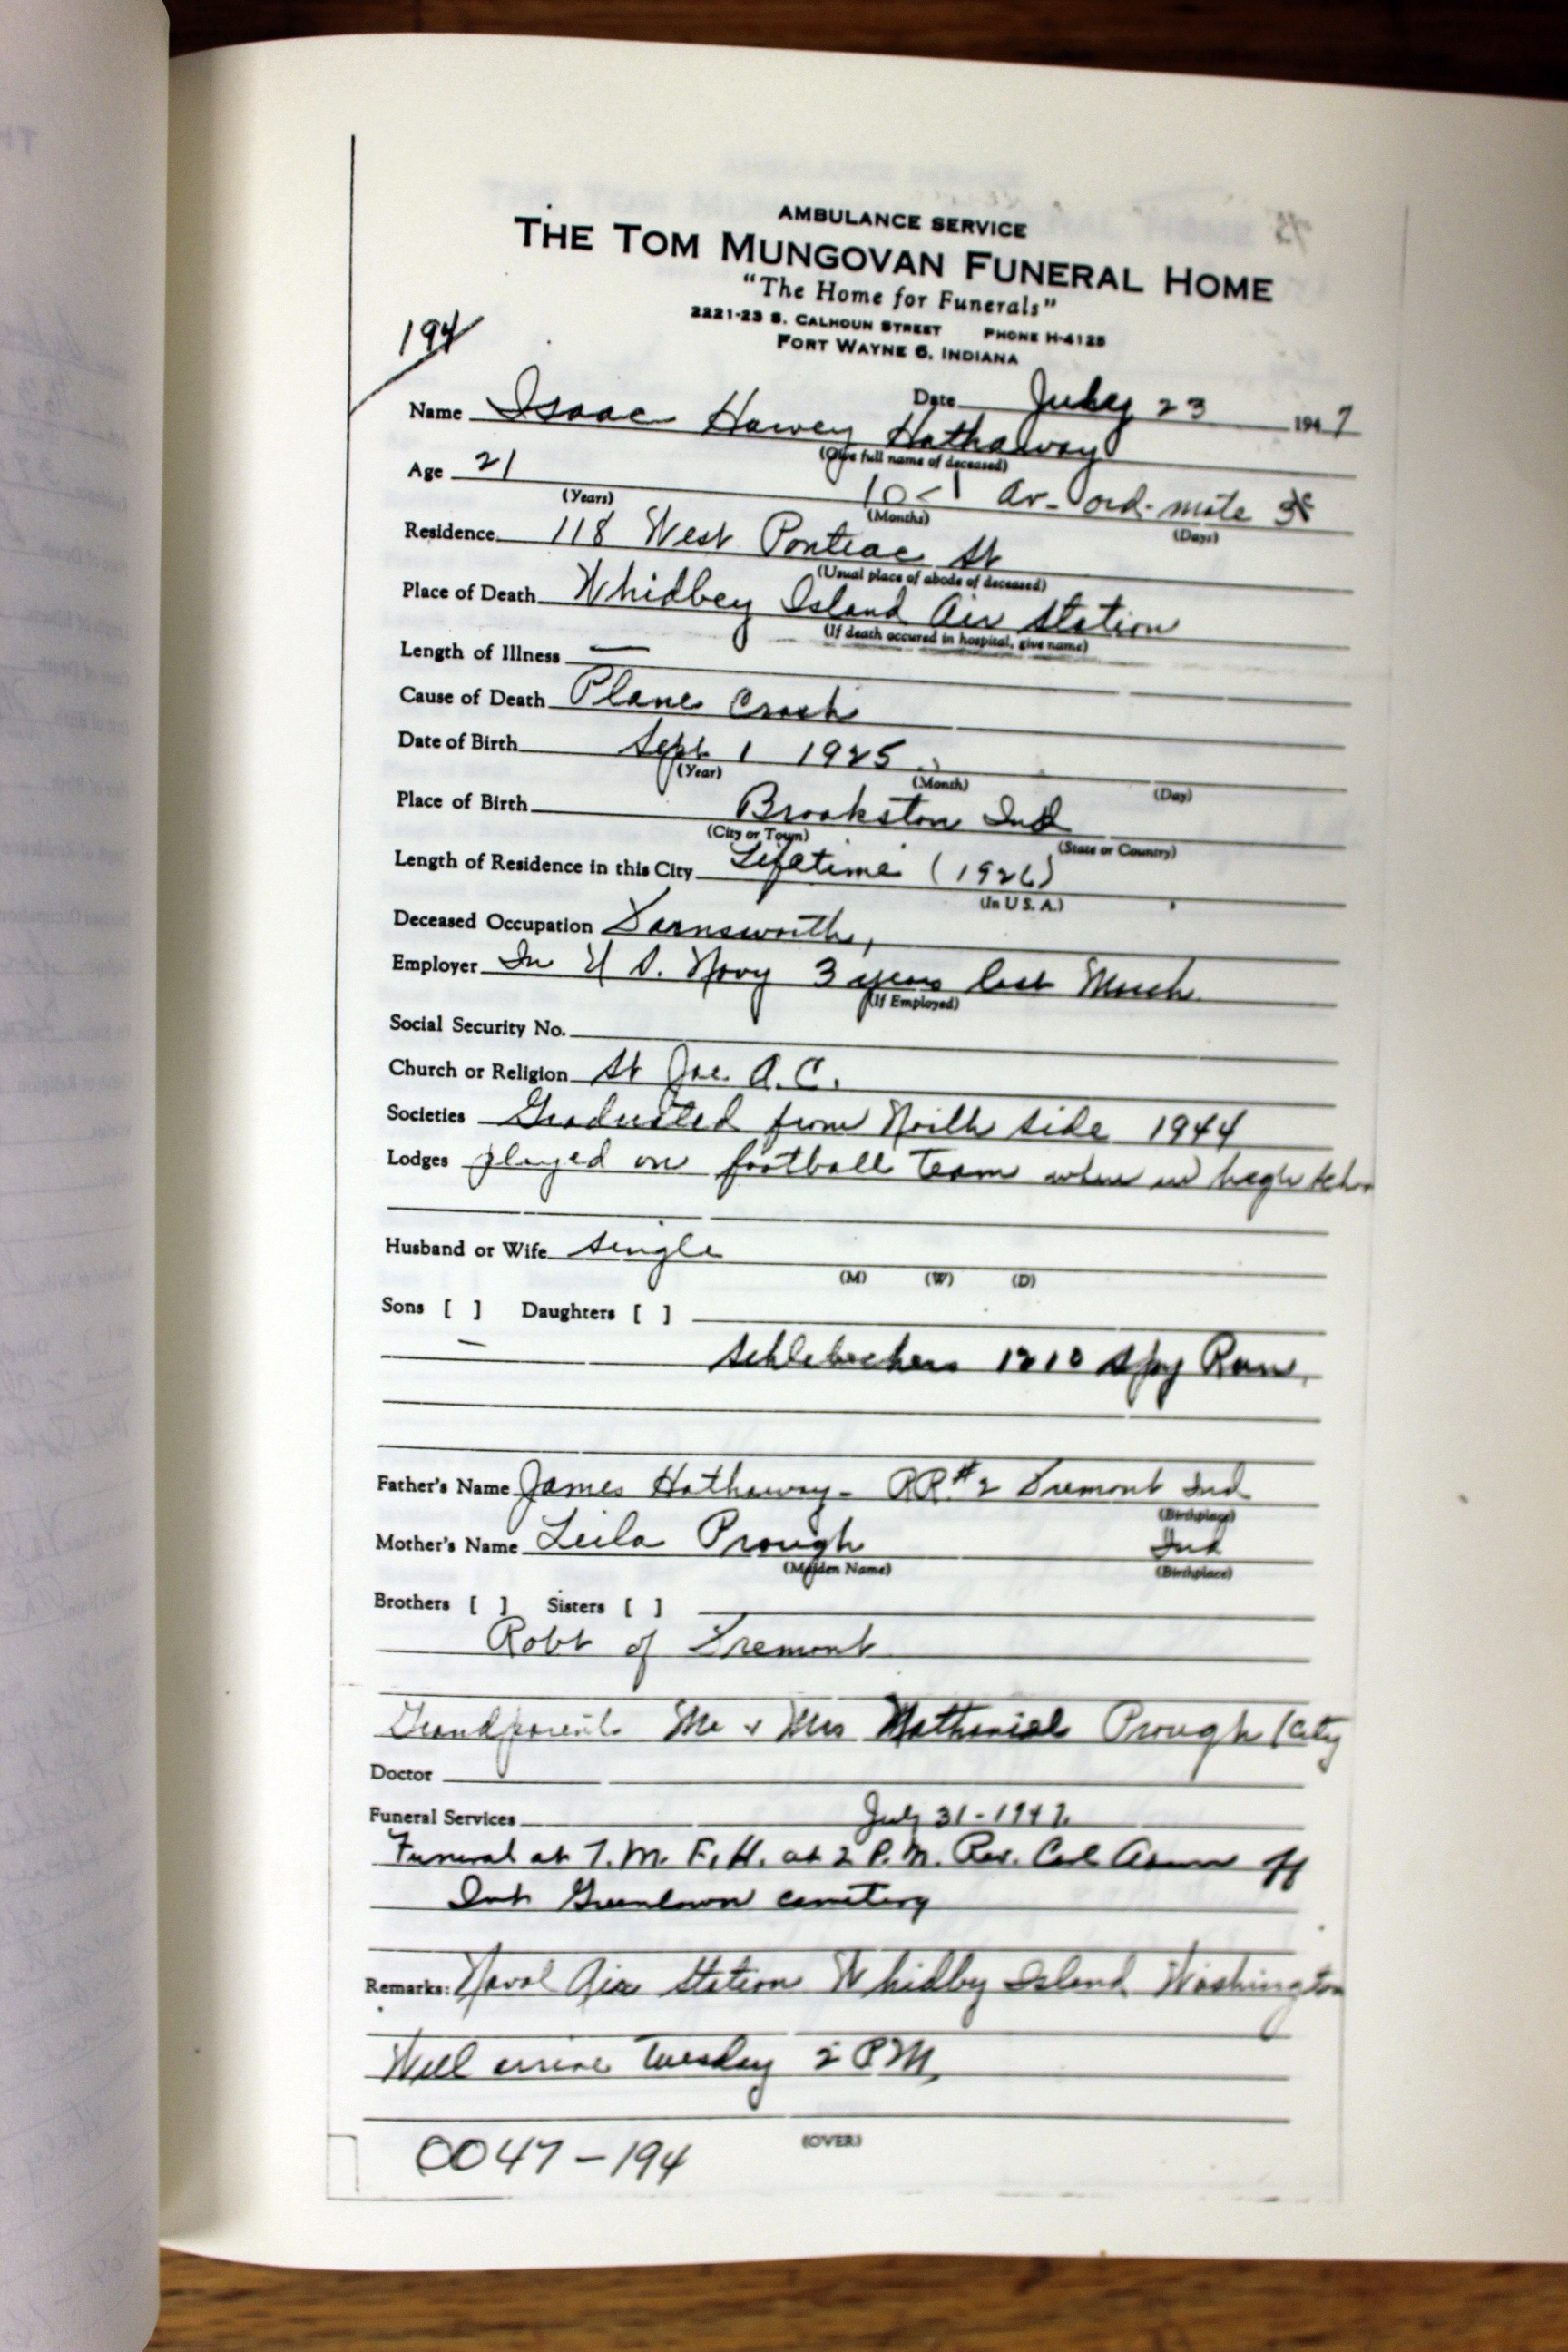 AMBULANCE SERVICE
THE TOM MUNGOVAN FUNERAL HOME
"The Home for Funerals"
2221-23 S. CALHOUN STREET PHONE H-4125
FORT WAYNE 6, INDIANA
194
Date July 23 1947
Name Isaac Harvey Hathaway
(Give full name of deceased)
Age 21 10-1 Av- ord. mate
(Years) (Months) (Days)
Residence 118 West Pontiac St
(Usual place of abode of deceased)
Place of Death Whidbey Island Air Station
(If death occured in hospital, give name)
Length of Illness —
Cause of Death Plane Crash
Date of Birth Sept 1 1925
(Year) (Month) (Day)
Place of Birth Brookston Ind
(City or Town) (State or Country)
Length of Residence in this City Lifetime (1926)
(In U S. A.)
Deceased Occupation Farnsworth,
Employer In U S. Navy 3 years last March
(If Employed)
Social Security No.
Church or Religion St Joe
Societies Graduated from North Side 1944
Lodges played on football team when in high
Husband or Wife single
(M) (W) (D)
Sons [ ] Daughters [ ]
— 1210 Spy Run,
Father's Name James Hathaway - RR#2 Fremont Ind
(Birthplace)
Mother's Name Leila Prough Ind
(Maiden Name) (Birthplace)
Brothers [ ] Sisters [ ]
Robt of Fremont
Grandparents Mr & Mrs Nathaniel Prough (City
Doctor
Funeral Services July 31-1947
Funeral at T.M. F.H. at 2 P.M. Rev.
Int Greenlawn cemetery
Remarks: Naval Air Station Whidby Island Washington
Will arrive Tuesday 2 PM,
(OVER)
0047-194